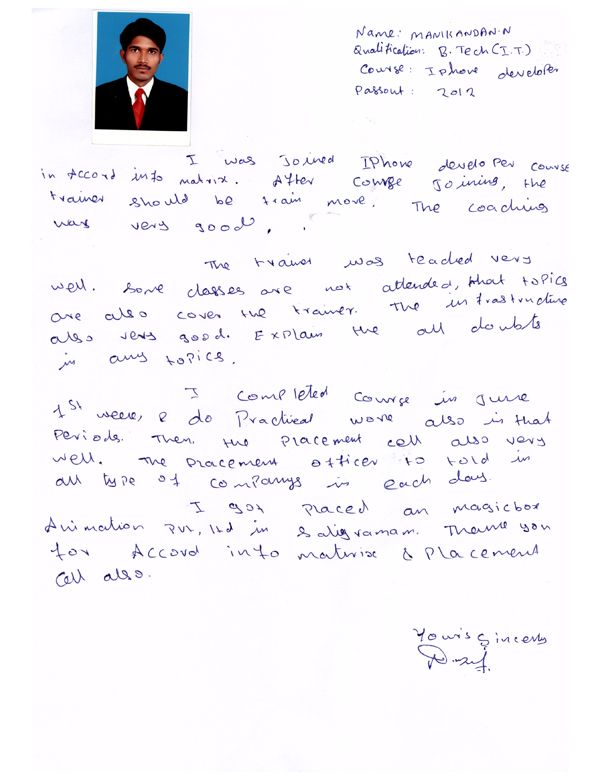 Name: MANIKANDAN.N
Qualification: B.Tech(I.T.)
Course: Iphone developer
Passout: 2012
I was Joined IPhone developer course
in Accord info matrix. After Course Joining, the
trainer should be train more. The coaching
was very good.
The trainer was teached very
well. Some classes are not attended, that topics
are also cover the trainer. The infrastructure
also very good. Explain the all doubts
in any topics.
I completed course in June
1st week, & do Practical work also is that
Periods. Then, the Placement cell also very
well. The Placement officer to told in
all type of companys in each day.
I got Placed an magicbox
Animation Pvt, Ltd in Saligramam. Thank you
for Accord info materix & Placement
Cell also.
Your's Sincerly